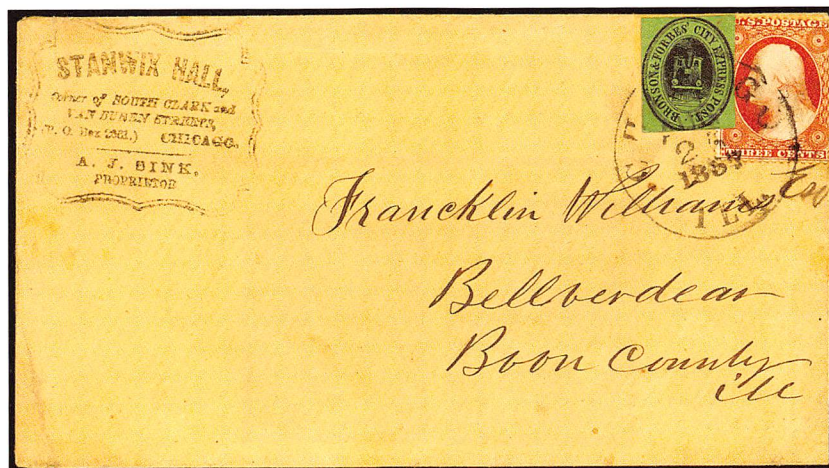 STANWIX HALL,
Corner of SOUTH CLARK and
VAN BUREN STREETS,
(P. O. Box 2361.) CHICAGO.
A. J. SINK,
PROPRIETOR
BRONSON & FORBES' CITY EXPRESS POST.
U.S. POSTAGE
THREE CENTS
ILL
Francklin Williams Esq
Bellverdear
Boon County
ill